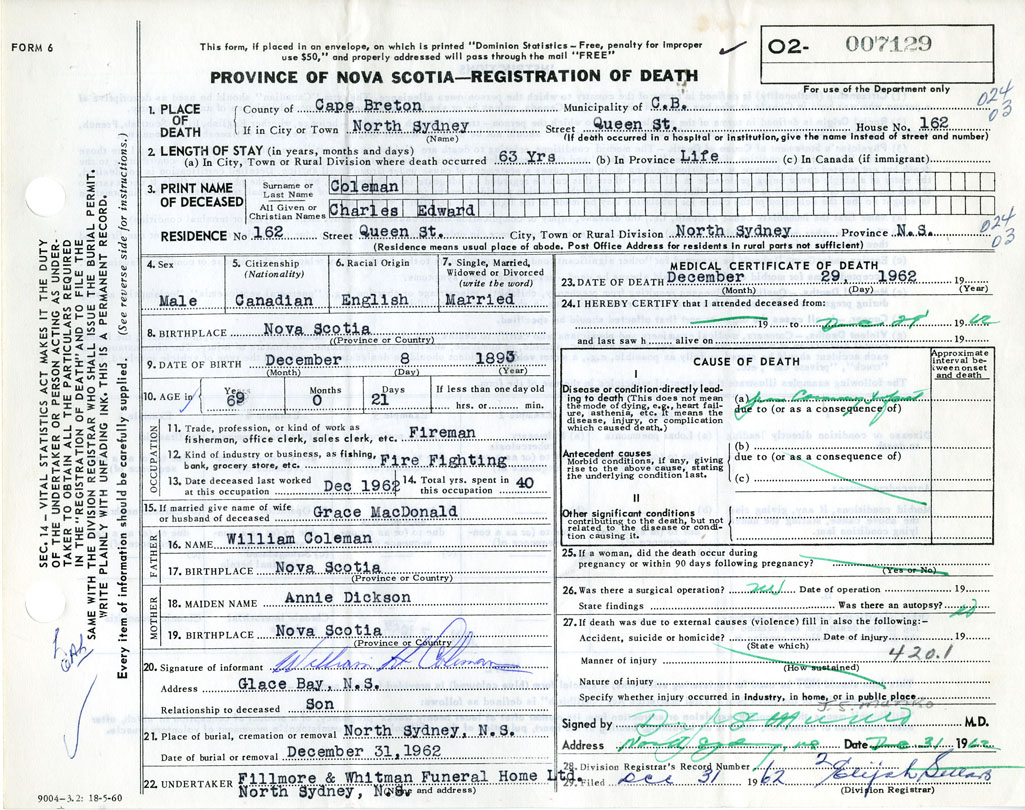 FORM 6
This form, if placed in an envelope, on which is printed "Dominion Statistics – Free, penalty for improper
use $50," and properly addressed will pass through the mail "FREE"
O2- 007129
For use of the Department only
PROVINCE OF NOVA SCOTIA—REGISTRATION OF DEATH
024
03
1. PLACE OF DEATH
County of Cape Breton Municipality of C.B.
If in City or Town North Sydney Street Queen St. House No. 162
(Name) (If death occurred in a hospital or institution, give the name instead of street and number)
2. LENGTH OF STAY (in years, months and days)
(a) In City, Town or Rural Division where death occurred 63 Yrs (b) In Province Life (c) In Canada (if immigrant)
3. PRINT NAME OF DECEASED
Surname or Last Name Coleman
All Given or Christian Names Charles Edward
024
03
RESIDENCE No 162 Street Queen St. City, Town or Rural Division North Sydney Province N.S.
(Residence means usual place of abode. Post Office Address for residents in rural parts not sufficient)
4. Sex
Male
5. Citizenship (Nationality)
Canadian
6. Racial Origin
English
7. Single, Married, Widowed or Divorced (write the word)
Married
8. BIRTHPLACE Nova Scotia
(Province or Country)
9. DATE OF BIRTH December 8 1893
(Month) (Day) (Year)
10. AGE in
Years 69 Months 0 Days 21 If less than one day old
hrs. or min.
OCCUPATION
11. Trade, profession, or kind of work as
fisherman, office clerk, sales clerk, etc. Fireman
12. Kind of industry or business, as fishing,
bank, grocery store, etc. Fire Fighting
13. Date deceased last worked
at this occupation Dec 1962
14. Total yrs. spent in
this occupation 40
15. If married give name of wife
or husband of deceased Grace MacDonald
FATHER
16. NAME William Coleman
17. BIRTHPLACE Nova Scotia
(Province or Country)
MOTHER
18. MAIDEN NAME Annie Dickson
19. BIRTHPLACE Nova Scotia
(Province or Country)
20. Signature of informant William H Coleman
Address Glace Bay, N.S.
Relationship to deceased Son
21. Place of burial, cremation or removal North Sydney, N.S.
Date of burial or removal December 31,1962
22. UNDERTAKER Fillmore & Whitman Funeral Home Ltd.
North Sydney, N.S. and address)
9004–3.2: 18-5-60
MEDICAL CERTIFICATE OF DEATH
23. DATE OF DEATH December 29, 1962 19
(Month) (Day) (Year)
24. I HEREBY CERTIFY that I attended deceased from:
19 to Dec 29 1962
and last saw h alive on 19
CAUSE OF DEATH
Approximate interval between onset and death
I
Disease or condition directly leading to death (This does not mean the mode of dying, e.g., heart failure, asthenia, etc. It means the disease, injury, or complication which caused death.)
(a)
due to (or as a consequence of)
Antecedent causes
Morbid conditions, if any, giving rise to the above cause, stating the underlying condition last.
(b)
due to (or as a consequence of)
(c)
II
Other significant conditions
contributing to the death, but not related to the disease or condition causing it.
25. If a woman, did the death occur during
pregnancy or within 90 days following pregnancy?
(Yes or No)
26. Was there a surgical operation? Date of operation 19
State findings Was there an autopsy? no
27. If death was due to external causes (violence) fill in also the following:-
Accident, suicide or homicide? Date of injury 19
(State which)
Manner of injury 420.1
(How sustained)
Nature of injury
Specify whether injury occurred in industry, in home, or in public place
Signed by M.D.
Address Date Dec 31 1962
28. Division Registrar's Record Number 2
29. Filed Dec 31 1962 Elijah
(Division Registrar)
SEC. 14 – VITAL STATISTICS ACT MAKES IT THE DUTY
OF THE UNDERTAKER OR PERSON ACTING AS UNDERTAKER
TO OBTAIN ALL THE PARTICULARS REQUIRED
IN THE "REGISTRATION OF DEATH" AND TO FILE THE
SAME WITH THE DIVISION REGISTRAR WHO SHALL ISSUE THE BURIAL PERMIT.
WRITE PLAINLY WITH UNFADING INK. THIS IS A PERMANENT RECORD.
Every item of information should be carefully supplied. (See reverse side for instructions.)